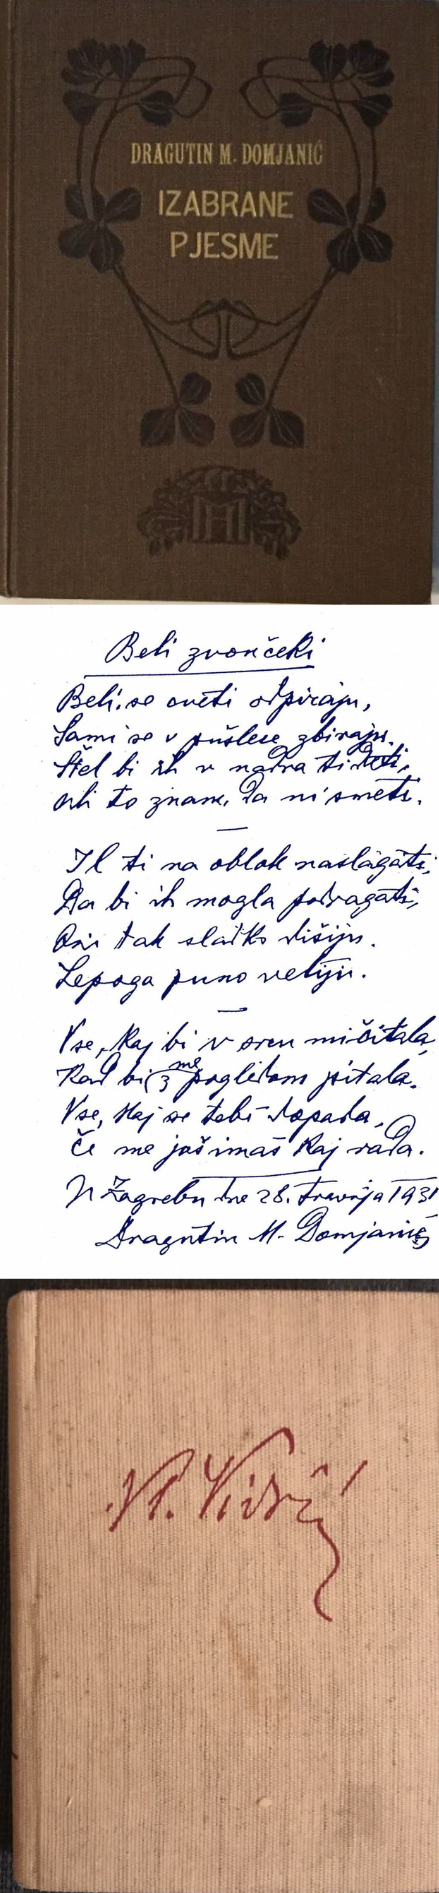 DRAGUTIN M. DOMJANIĆ
IZABRANE
PJESME
Beli zvončeki
Beli se cveti otpiraju,
Sami se v pušlece zbiraju.
Štel bi ih v nadra ti deti,
ali to znam, da ni smeti.
Il ti na oblok naslagati,
Da bi ih mogla podragati,
Oni tak slatko dišiju.
Lepoga puno vetiju.
Vse, kaj bi v srcu mi čitala,
Kad bi z me pogledom pitala.
Vse, kaj se tebi dopada,
Če me još imaš kaj rada.
U Zagrebu dne 28. travnja 1931
Dragutin M. Domjanić
Vl. Vidrić